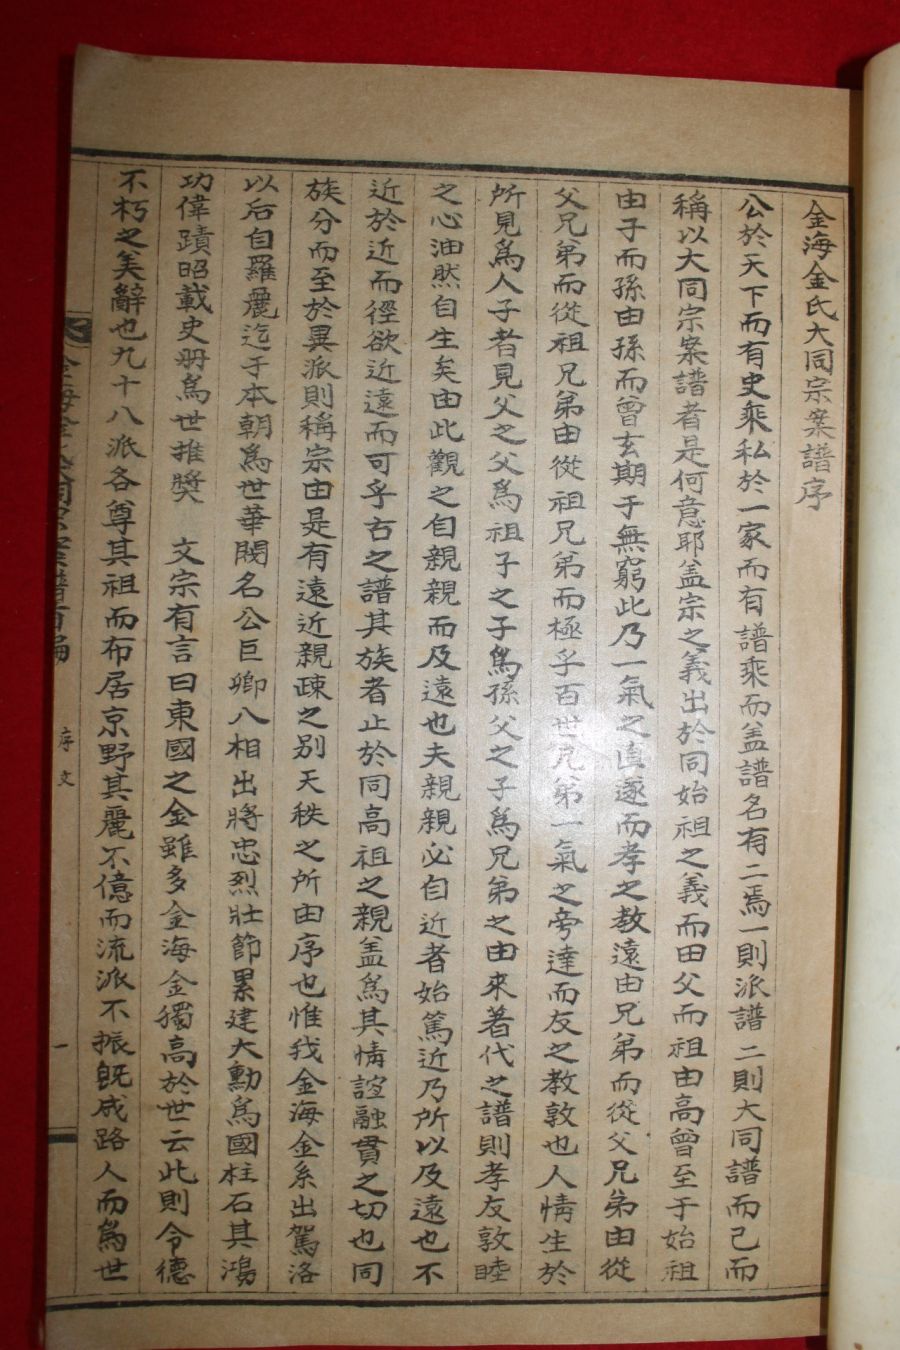 金海金氏大同宗案譜序
公於天下而有史乘私於一家而有譜乘而盖譜名有二焉一則派譜二則大同譜而已而
稱以大同宗案譜者是何意耶盖宗之義出於同始祖之義而田父而祖由高曾至于始祖
由子而孫由孫而曾玄期于無窮此乃一氣之直遂而孝之教遠由兄弟而從父兄弟由從
父兄弟而從祖兄弟由從祖兄弟而極乎百世兄弟一氣之旁達而友之教敦也人情生於
所見爲人子者見父之父爲祖子之子爲孫父之子爲兄弟之由來著代之譜則孝友敦睦
之心油然自生矣由此觀之自親親而及遠也夫親親必自近者始篤近乃所以及遠也不
近於近而徑欲近遠而可乎古之譜其族者止於同高祖之親盖爲其情誼融貫之切也同
族分而至於異派則稱宗由是有遠近親疎之別天秩之所由序也惟我金海金系出駕洛
以后自羅麗迄于本朝爲世華閥名公巨卿入相出將忠烈壯節累建大勳爲國柱石其鴻
功偉蹟昭載史册爲世推獎　文宗有言曰東國之金雖多金海金獨高於世云此則令德
不朽之美辭也九十八派各尊其祖而布居京野其麗不億而流派不振旣成路人而爲世
序文
一